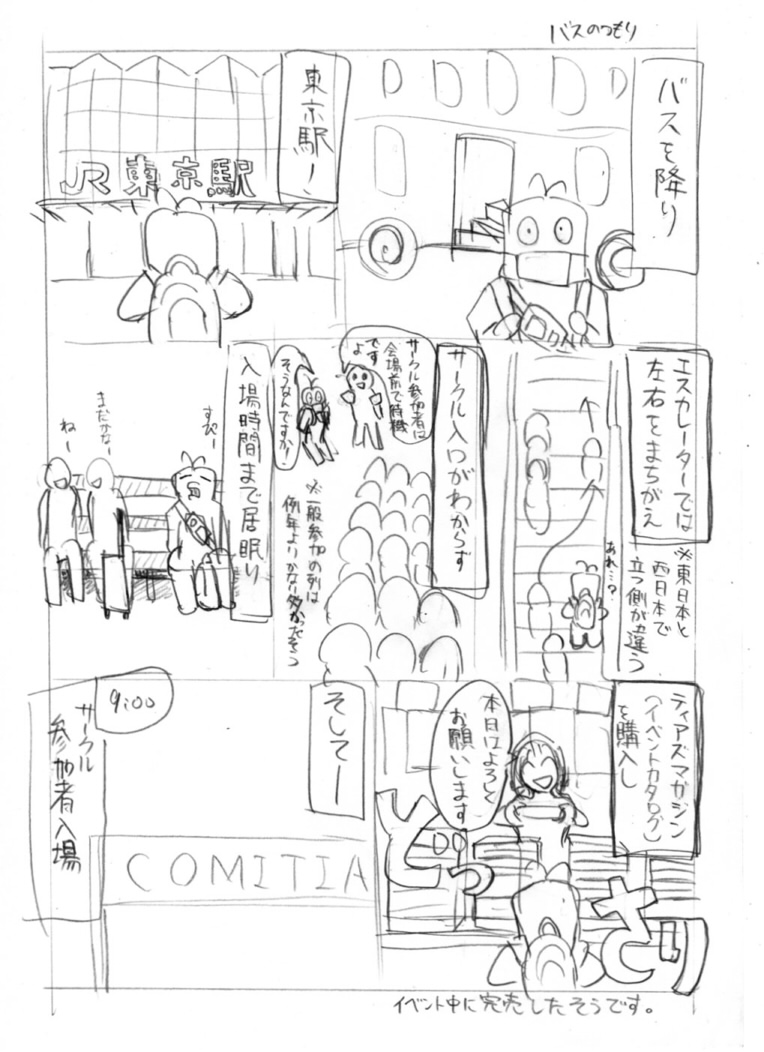 バスのつもり
バスを降り
東京駅！
JR 東京駅
エスカレーターでは
左右をまちがえ
※東日本と
西日本で
立つ側が違う
あれ…？
サークル入口がわからず
サークル参加者は
会場前で待機
ですよ
そうなんですか！
※一般参加の列は
例年よりかなり多かったそう
入場時間まで居眠り
すぴー
まだかなー
ねー
ティアズマガジン
（イベントカタログ）
を購入し
本日はよろしく
お願いします
どっ
さり
そしてー
COMITIA
9:00
サークル
参加者入場
イベント中に完売したそうです。